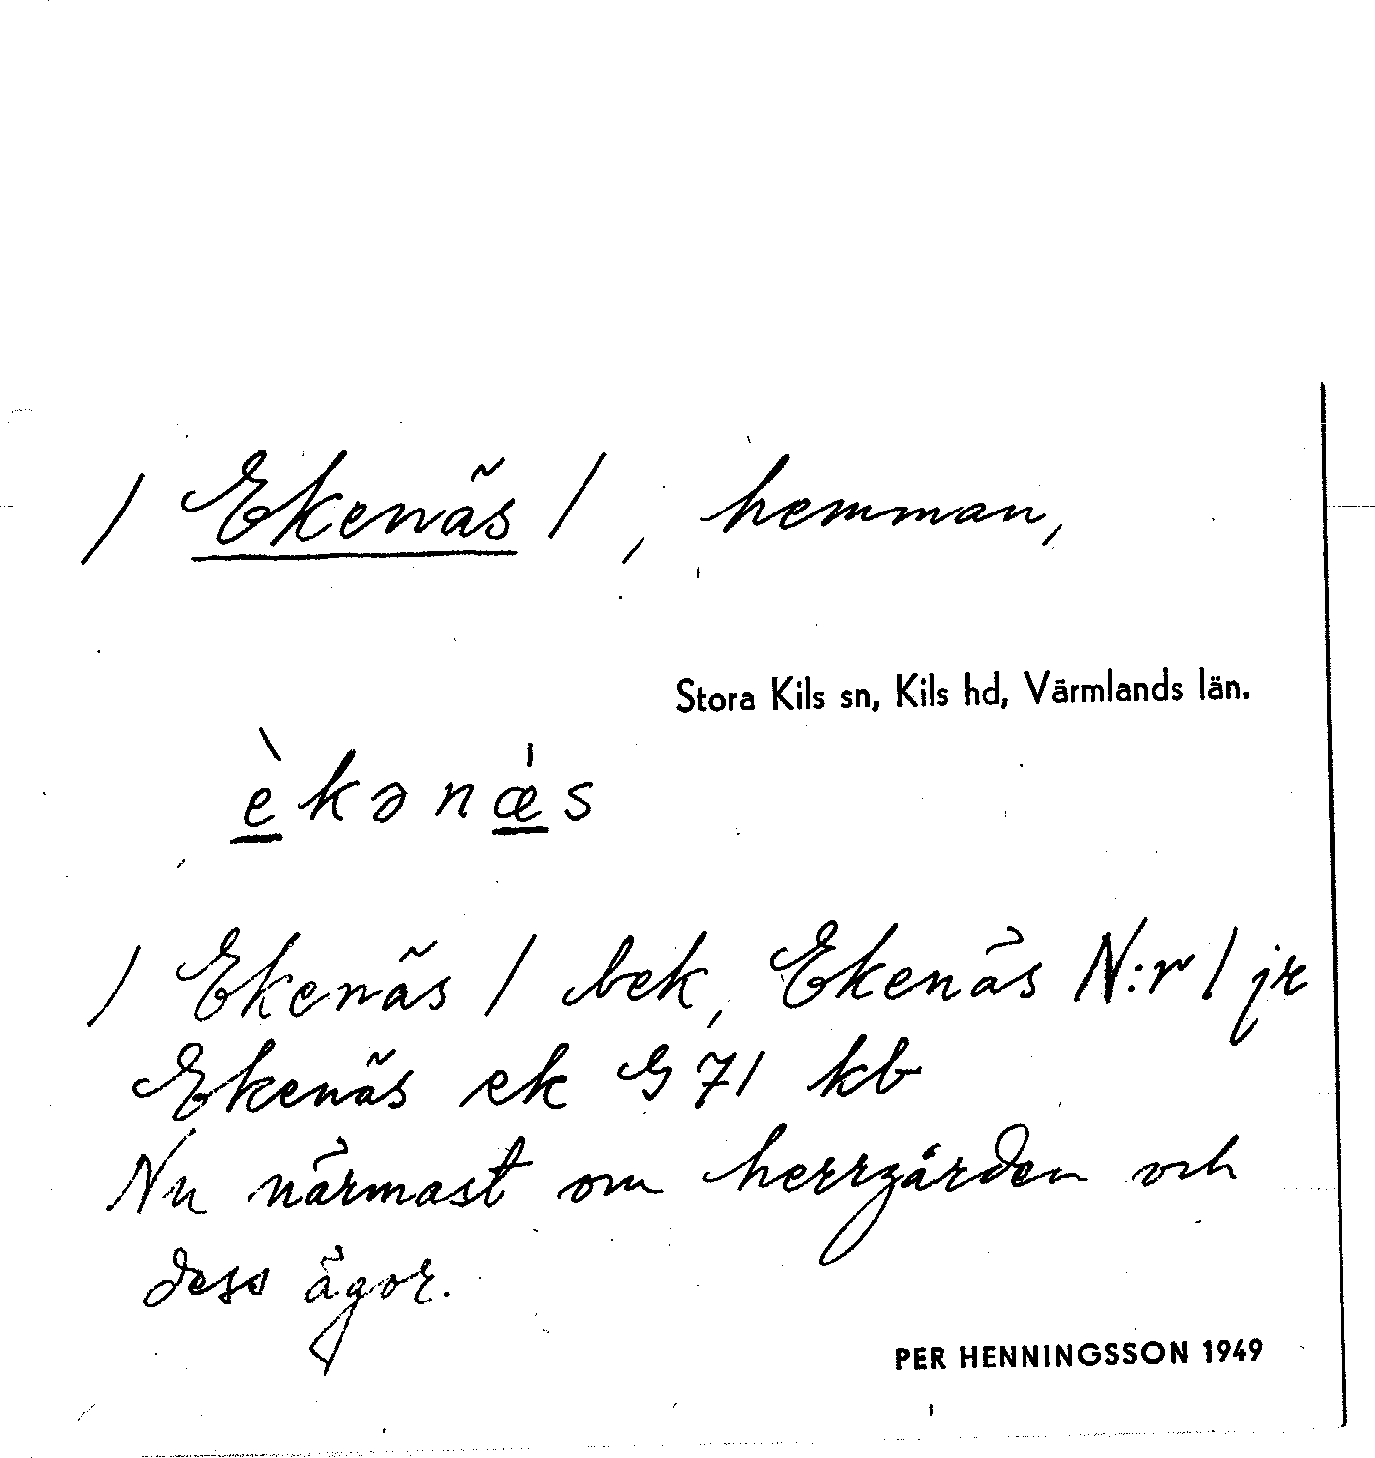 / Ekenäs /, hemman,
Stora Kils sn, Kils hd, Värmlands län.
èkənǽs
/ Ekenäs / bek, Ekenäs N:r 1 jr
Ekenäs ek G 71 kb
Nu närmast om herrgården och
dess ägor.
PER HENNINGSSON 1949